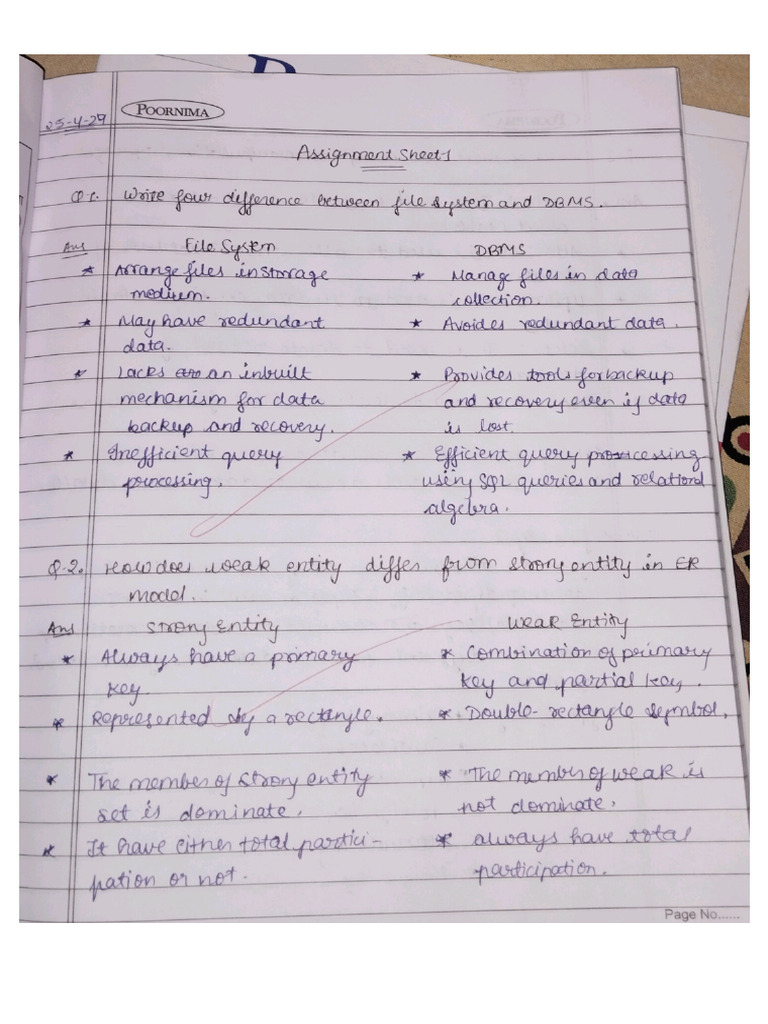 25-4-24
POORNIMA
Assignment Sheet-1
Q 1. Write four difference between file system and DBMS.
Ans File System DBMS
* Arrange files in storage * Manage files in data
medium. collection.
* May have redundant * Avoides redundant data.
data.
* Lacks an inbuilt * Provides tools for backup
mechanism for data and recovery even if data
backup and recovery. is lost.
* Inefficient query * Efficient query processing
processing. using SQL queries and relational
algebra.
Q-2. How does weak entity differs from strong entity in ER
model.
Ans Strong Entity Weak Entity
* Always have a primary * Combination of primary
key. key and partial key.
* Represented by a rectangle. * Double-rectangle symbol.
* The member of strong entity * The member of weak is
set is dominate. not dominate.
* It have either total partici- * always have total
pation or not. participation.
Page No......